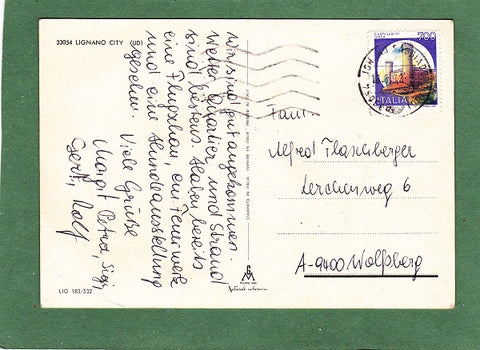 33054 LIGNANO CITY (UD)
Wir sind gut angekommen.
Wetter, Quartier und Strand
sind bestens. Haben bereits
eine Flugschau, ein Feuerwerk
und eine Hundeausstellung
gesehen.
Viele Grüße
Margit, Petra, Sigi,
Gerti, Rolf
LIG 183/332
700
ITALIA
Fam.
Alfred Flaschberger
Lerchenweg 6
A-9400 Wolfsberg